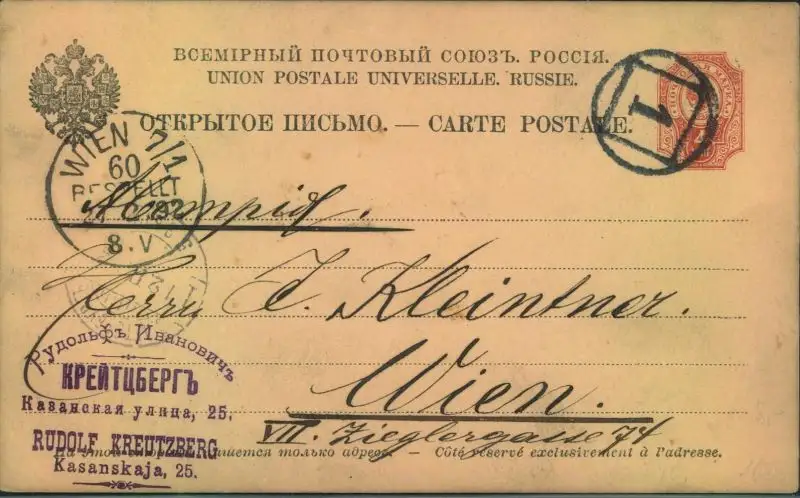 ВСЕМІРНЫЙ ПОЧТОВЫЙ СОЮЗЪ. РОССІЯ.
UNION POSTALE UNIVERSELLE. RUSSIE.
ОТКРЫТОЕ ПИСЬМО. — CARTE POSTALE.
1
WIEN 7/1
60
BESTELLT
92
8. V
Herrn J. Kleintner.
Wien.
VII. Zieglergasse 74
Рудольфъ Ивановичъ
КРЕЙТЦБЕРГЪ
Казанская улица, 25.
RUDOLF KREUTZBERG
Kasanskaja, 25.
На этой сторонѣ пишется только адресъ. — Côté réservé exclusivement à l'adresse.